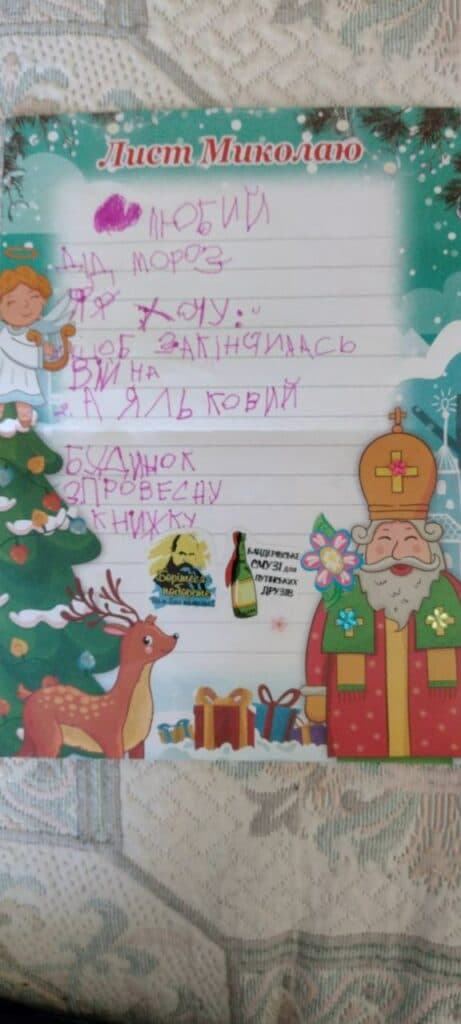 Лист Миколаю
ЛЮБИЙ
ДІД МОРОЗ
Я Я ХОЧУ:
ЩОБ ЗАКІНЧИЛАСЬ
ВІЙНА
2. А ЯЛЬКОВИЙ
БУДИНОК
ЗПРОВЕСНУ
КНИЖКУ
Борітеся
поборете
БАНДЕРІВСЬКЕ
СМУЗІ ДЛЯ
ПУТІНСЬКИХ
ДРУЗІВ